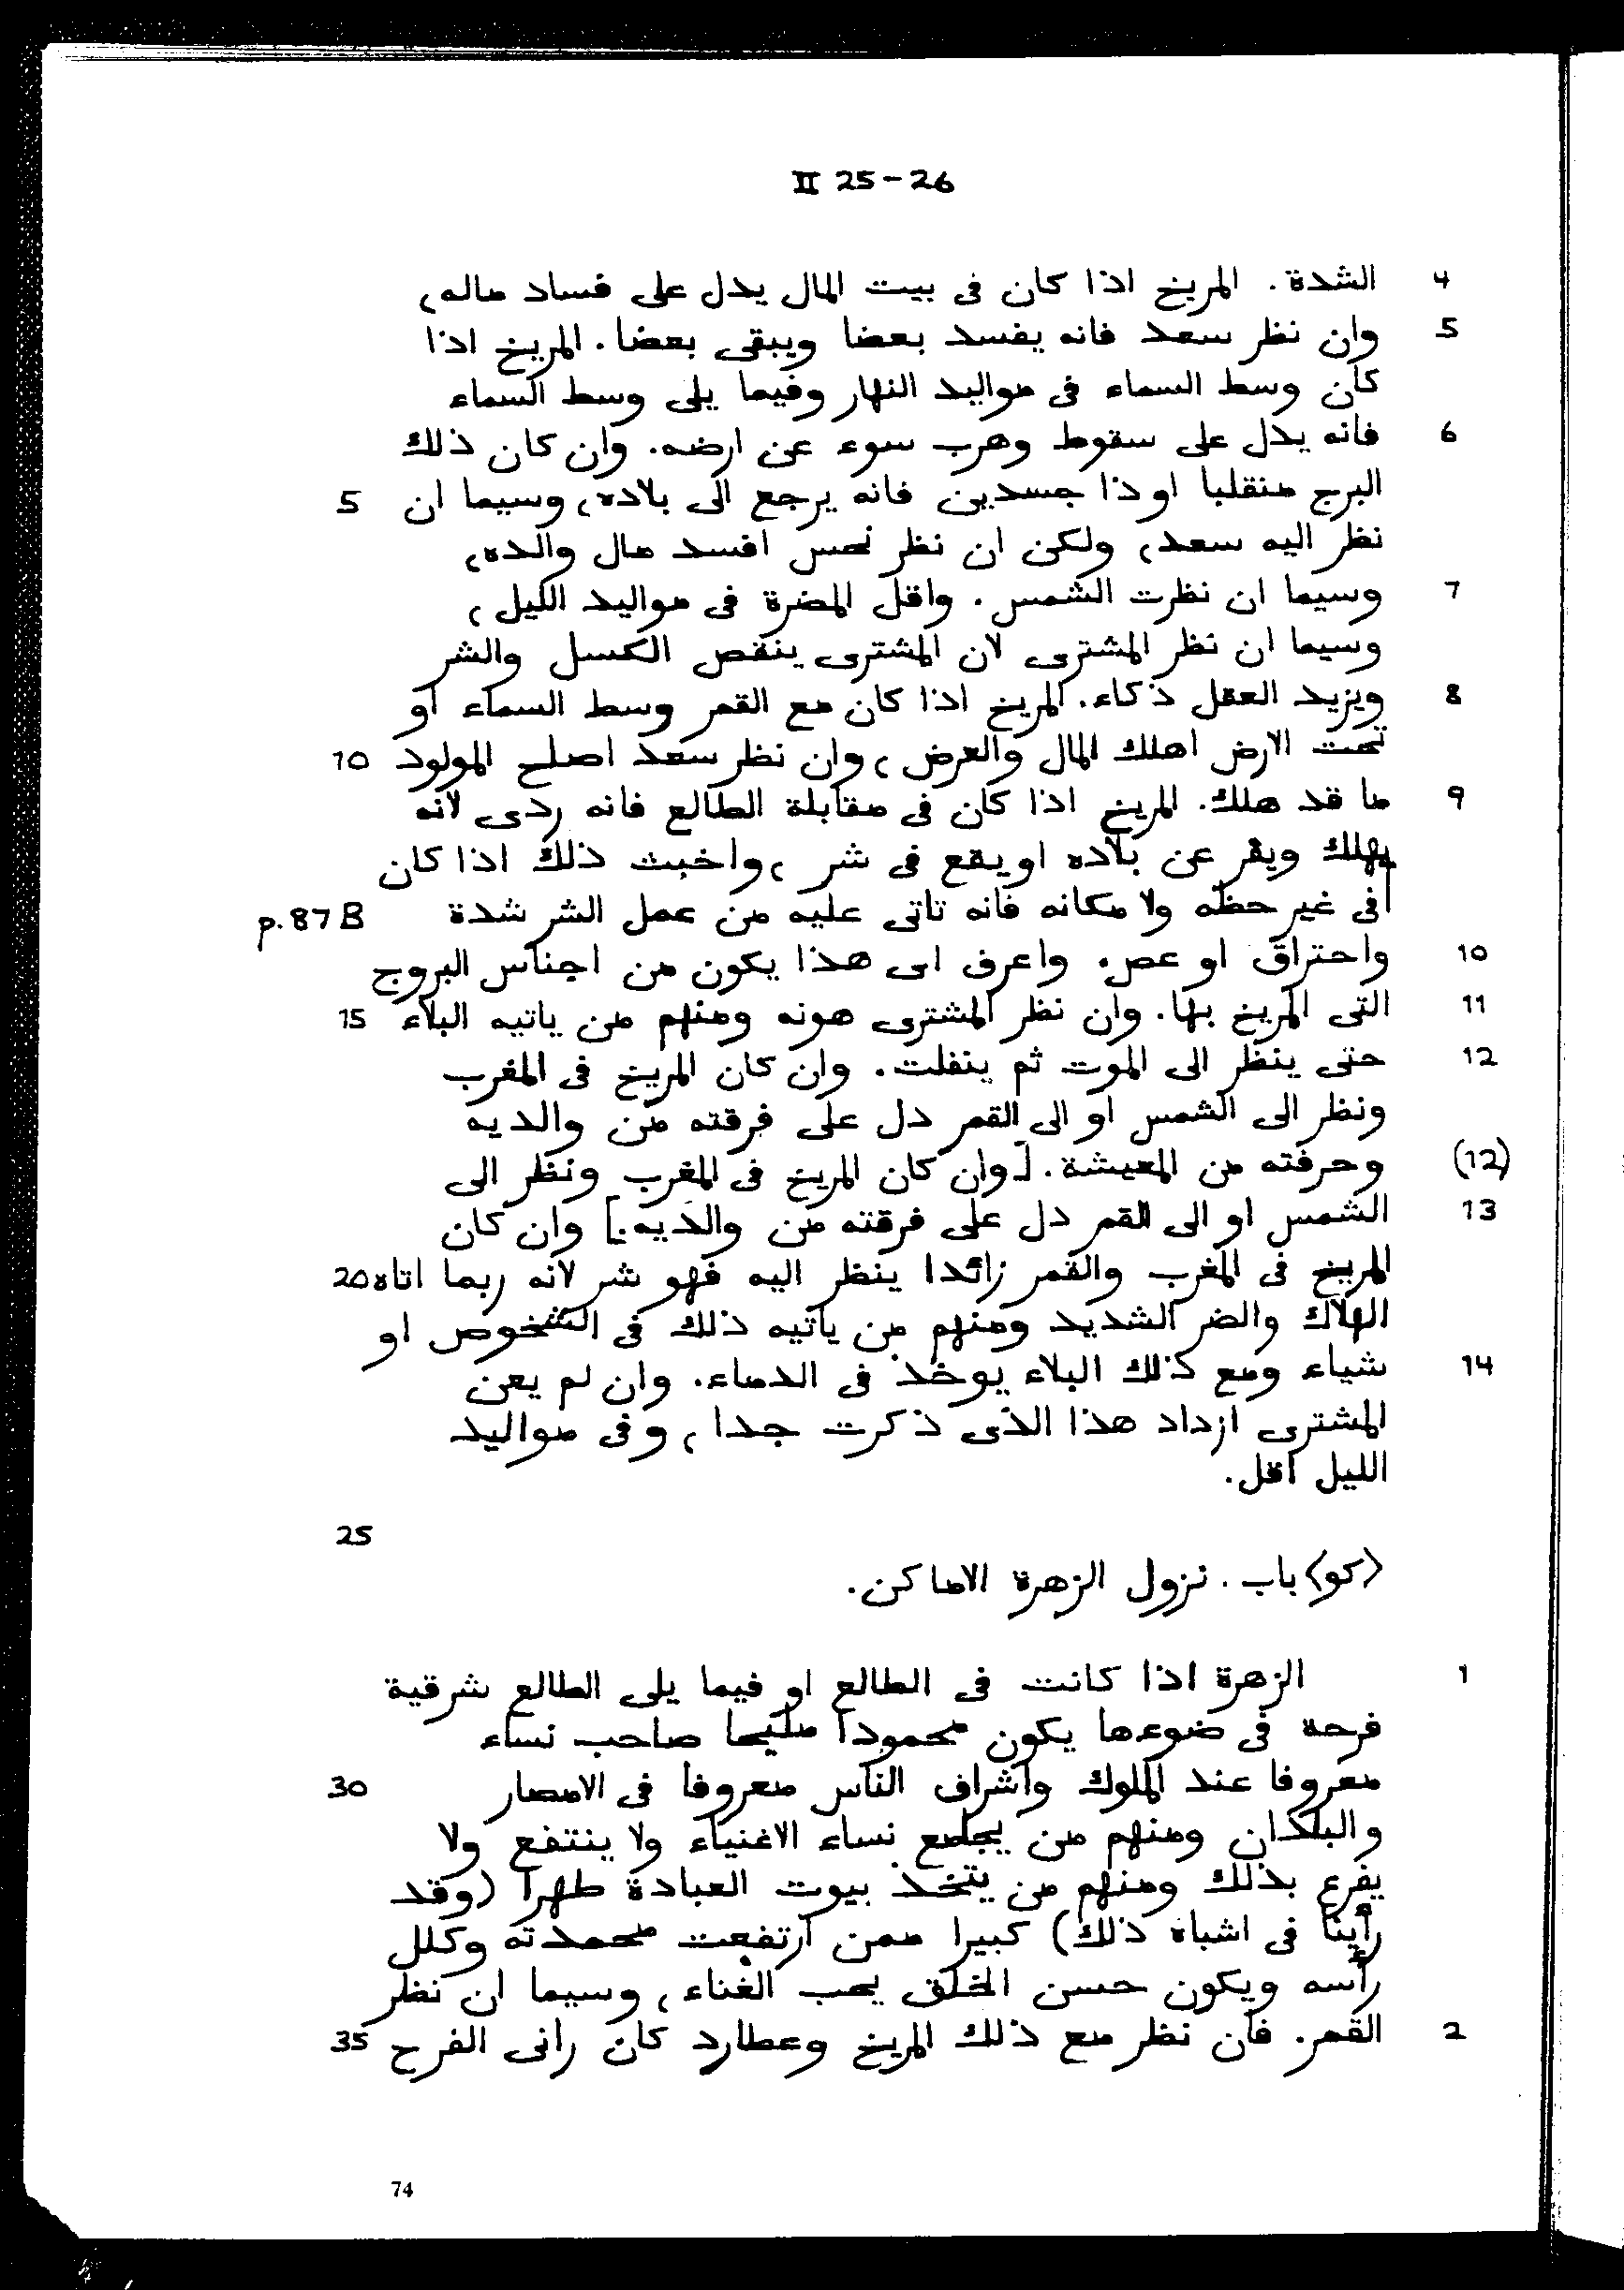 II 25-26
4 الشدة. المريخ اذا كان فى بيت المال يدل على فساد ماله،
5 وان نظر سعد فانه يفسد بعضا ويبقى بعضا. المريخ اذا
كان وسط السماء فى مواليد النهار وفيما يلى وسط السماء
6 فانه يدل على سقوط وهرب سوء عن ارضه. وان كان ذلك
البرج منقلبا اوذا جسدين فانه يرجع الى بلاده، وسيما ان 5
نظر اليه سعد، ولكن ان نظر نحس افسد مال والده،
7 وسيما ان نظرت الشمس. واقل المضرة فى مواليد الليل،
وسيما ان نظر المشترى لان المشترى ينقص الكسل والشر
8 ويزيد العقل ذكاء. المريخ اذا كان مع القمر وسط السماء او
تحت الارض اهلك المال والعرض، وان نظر سعد اصلح المولود 10
9 ما قد هلك. المريخ اذا كان فى مقابلة الطالع فانه ردى لانه
يهلك ويفر عن بلاده او يقع فى شر، واخبث ذلك اذا كان
فى غير حظه ولا مكانه فانه تاتى عليه من عمل الشر شدة p.87B
10 واحتراق او عص. واعرف اى هذا يكون من اجناس البروج
11 التى المريخ بها. وان نظر المشترى هونه ومنهم من ياتيه البلاء 15
12 حتى ينظر الى الموت ثم ينفلت. وان كان المريخ فى المغرب
ونظر الى الشمس او الى القمر دل على فرقته من والديه
(12) وحرفته من المعيشة. [وان كان المريخ فى المغرب ونظر الى
13 الشمس او الى القمر دل على فرقته من والديه.] وان كان
المريخ فى المغرب والقمر زائدا ينظر اليه فهو شر لانه ربما اتاه 20
الهلاك والضر الشديد ومنهم من ياتيه ذلك فى الشخوص او
14 شياء ومع ذلك البلاء يوخذ فى الدماء. وان لم يعن
المشترى ازداد هذا الذى ذكرت جدا، وفى مواليد
الليل اقل.
25
<كو> باب. نزول الزهرة الاماكن.
1 الزهرة اذا كانت فى الطالع او فيما يلى الطالع شرقية
فرحة فى ضوءها يكون محمودا مليحا صاحب نساء
معروفا عند الملوك واشراف الناس معروفا فى الامصار 30
والبلدان ومنهم من يجامع نساء الاغنياء ولا ينتفع ولا
يفرع بذلك ومنهم من يتخذ بيوت العبادة طهرا (وقد
رأينا فى اشباه ذلك) كبيرا ممن ارتفعت محمدته وكلل
رأسه ويكون حسن الخلق يحب الغناء، وسيما ان نظر
2 القمر. فان نظر مع ذلك المريخ وعطارد كان رانى الفرح 35
74